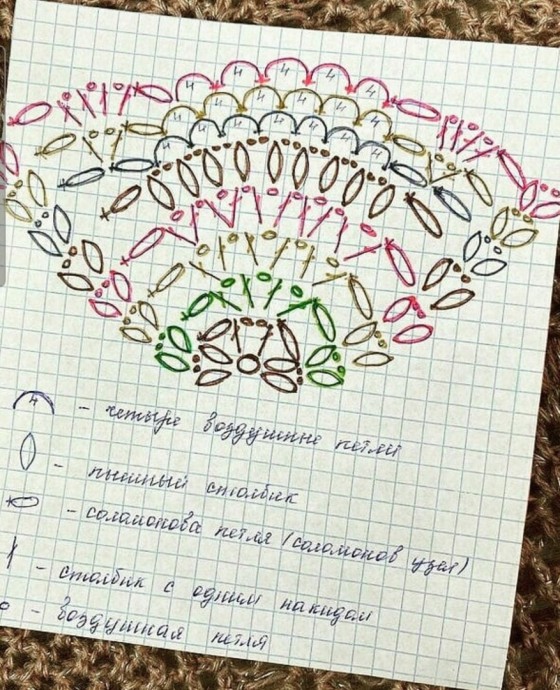 4 4 4 4 4
4 4 4 4 4 4
4 4 4 4 4 4
4 - четыре воздушные петли
- пышный столбик
- соломонова петля (соломонов узел)
- столбик с одним накидом
- воздушная петля